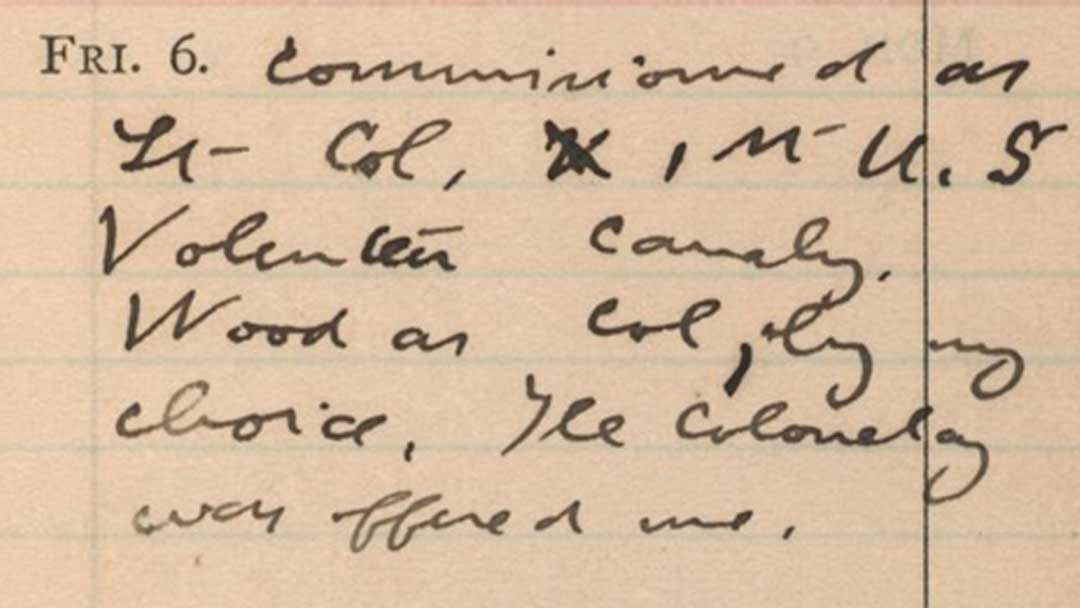 FRI. 6. Commissioned as
Lt Col, 1st U.S
Volunteer Cavalry.
Wood as Col, by my
choice. The Colonelcy
was offered me.